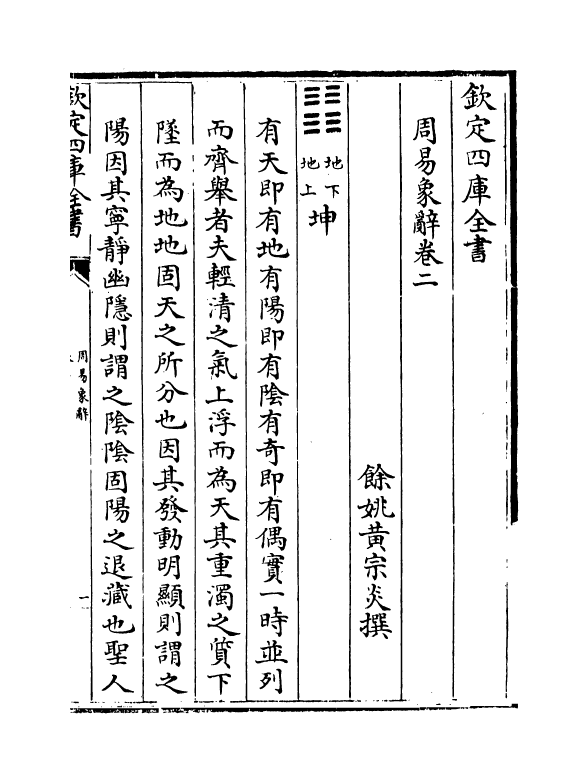 欽定四庫全書
周易象辭卷二
餘姚黃宗炎撰
䷁
地下
地上
坤
有天即有地有陽即有陰有奇即有偶實一時並列
而齊舉者夫輕清之氣上浮而為天其重濁之質下
墜而為地地固天之所分也因其發動明顯則謂之
陽因其寧靜幽隱則謂之陰陰固陽之退藏也聖人
欽定四庫全書
周易象辭
一